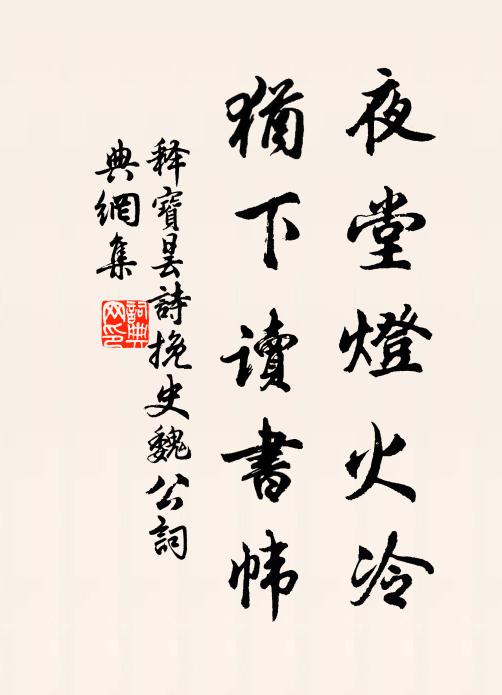 夜堂燈火冷
猶下讀書幃
釋寶曇詩挽史魏公詞
典網集
詞典
网印